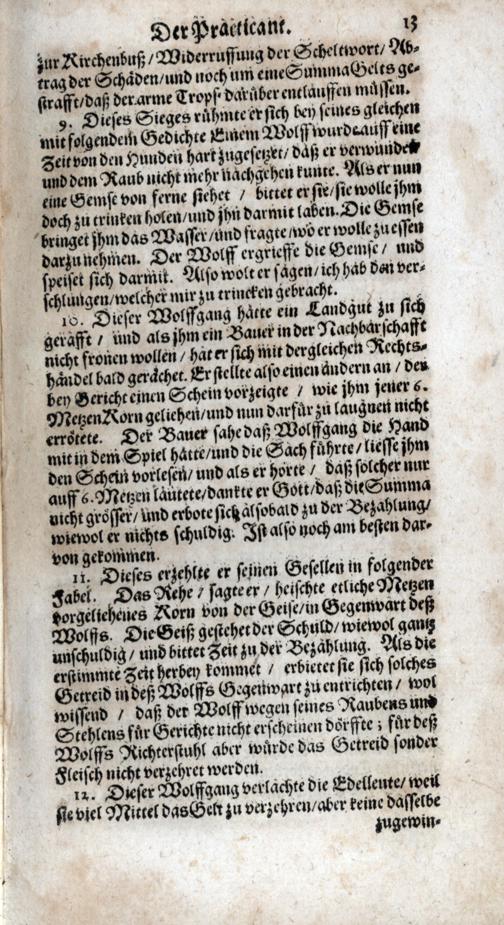 Der Practicant. 13
zur Kirchenbuß/Widerruffung der Scheltwort/Ab-
trag der Schäden/und noch um eine Summa Gelts ge-
strafft/daß der arme Tropf darüber entlauffen müssen.
9. Dieses Sieges rühmte er sich bey seines gleichen
mit folgendem Gedichte Einem Wolff wurde auff eine
Zeit von den Hunden hart zugesetzet/daß er verwundet
und dem Raub nicht mehr nachgehen kunte. Als er nun
eine Gemse von ferne siehet / bittet er sie/sie wolle jhm
doch zu trinken holen/und jhn darmit laben. Die Gemse
bringet jhm das Wasser/und fragte/wo er wolle zu essen
darzu nehmen. Der Wolff ergrieffe die Gemse / und
speiset sich darmit. Also wolt er sagen/ich hab den ver-
schlungen/welcher mir zu trincken gebracht.
10. Dieser Wolffgang hätte ein Landgut zu sich
gerafft / und als jhm ein Bauer in der Nachbarschafft
nicht fronen wollen / hat er sich mit dergleichen Rechts-
händel bald gerächet. Er stellte also einen andern an / der
bey Gericht einen Schein vorzeigte / wie jhm jener 6.
Metzen Korn geliehen/und nun darfür zu laugnen nicht
errötete. Der Bauer sahe daß Wolffgang die Hand
mit in dem Spiel hätte/und die Sach führte/liesse jhm
den Schein vorlesen/ und als er hörte / daß solcher nur
auff 6. Metzen läutete/dankte er Gott/daß die Summa
nicht grösser/und erbote sich alsobald zu der Bezahlung/
wiewol er nichts schuldig. Ist also noch am besten dar-
von gekommen.
11. Dieses erzehlte er seinen Gesellen in folgender
Fabel. Das Rehe / sagte er / heischte etliche Metzen
vorgeliehenes Korn von der Geise/in Gegenwart deß
Wolffs. Die Geiß gestehet der Schuld/wiewol gantz
unschuldig / und bittet Zeit zu der Bezahlung. Als die
erstimmte Zeit herbey kommet / erbietet sie sich solches
Getreid in deß Wolffs Gegenwart zu entrichten / wol
wissend / daß der Wolff wegen seines Raubens und
Stehlens für Gerichte nicht erscheinen dörffte ; für deß
Wolffs Richterstuhl aber würde das Getreid sonder
Fleisch nicht verzehret werden.
12. Dieser Wolffgang verlachte die Edelleute/ weil
sie viel Mittel das Gelt zu verzehren/aber keine dasselbe
zugewin-